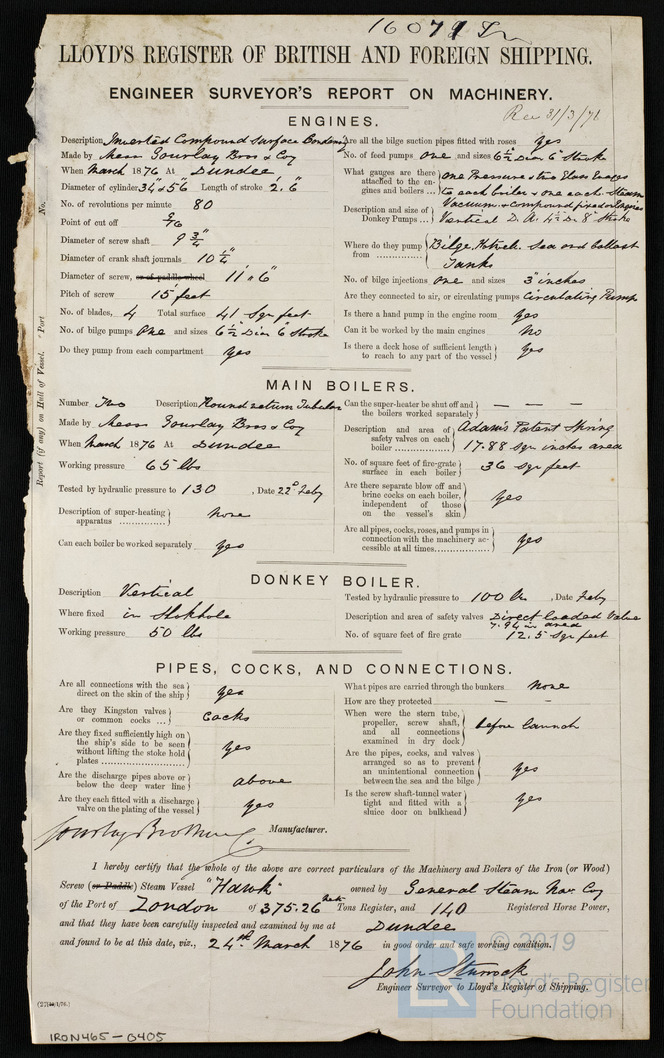 16079 In
LLOYD'S REGISTER OF BRITISH AND FOREIGN SHIPPING.
ENGINEER SURVEYOR'S REPORT ON MACHINERY.
Rec 31/3/76
Report (if any) on Hull of Vessel. Port No.
ENGINES.
Description Inverted Compound Surface Condensg
Made by Messrs Gourlay Bros & Coy
When March 1876 At Dundee
Diameter of cylinder 34" & 56" Length of stroke 2'.6"
No. of revolutions per minute 80
Point of cut off
Diameter of screw shaft 9 3/4"
Diameter of crank shaft journals 10 1/2"
Diameter of screw, or of paddle wheel 11' " 6"
Pitch of screw 15 feet
No. of blades, 4 Total surface 41 Sqr feet
No. of bilge pumps One and sizes 6 1/2 Dia 6" Stroke
Do they pump from each compartment Yes
Are all the bilge suction pipes fitted with roses Yes
No. of feed pumps One and sizes 6 1/2 Dia 6" Stroke
What gauges are there attached to the engines and boilers ... One Pressure & two Glass Gauges
to each boiler & one each Steam
Vacuum & Compound fixed on Engines
Description and size of Donkey Pumps ... Vertical D. A. 4 1/2 Dr 8" Stroke
Where do they pump from .............. Bilge, Hotwell. Sea and ballast
Tanks
No. of bilge injections One and sizes 3" inches
Are they connected to air, or circulating pumps Circulating Pump
Is there a hand pump in the engine room Yes
Can it be worked by the main engines No
Is there a deck hose of sufficient length to reach to any part of the vessel Yes
MAIN BOILERS.
Number Two Description Round return Tubular
Made by Messrs Gourlay Bros & Coy
When March 1876 At Dundee
Working pressure 65 lbs
Tested by hydraulic pressure to 130, Date 22d Feby
Description of super-heating apparatus .............. None
Can each boiler be worked separately Yes
Can the super-heater be shut off and the boilers worked separately — — —
Description and area of safety valves on each boiler .............. Adam's Patent Spring
17.88 Sqr inches area
No. of square feet of fire-grate surface in each boiler 36 Sqr feet
Are there separate blow off and brine cocks on each boiler, independent of those on the vessel's skin Yes
Are all pipes, cocks, roses, and pumps in connection with the machinery accessible at all times.............. Yes
DONKEY BOILER.
Description Vertical
Where fixed in Stokhole
Working pressure 50 lbs
Tested by hydraulic pressure to 100 lbs, Date Feby
Description and area of safety valves Direct loaded Valve
7.94 in area
No. of square feet of fire grate 12.5 Sqr feet
PIPES, COCKS, AND CONNECTIONS.
Are all connections with the sea direct on the skin of the ship Yes
Are they Kingston valves or common cocks ... Cocks
Are they fixed sufficiently high on the ship's side to be seen without lifting the stoke hold plates .............. Yes
Are the discharge pipes above or below the deep water line above
Are they each fitted with a discharge valve on the plating of the vessel Yes
What pipes are carried through the bunkers None
How are they protected — —
When were the stern tube, propeller, screw shaft, and all connections examined in dry dock before launch
Are the pipes, cocks, and valves arranged so as to prevent an unintentional connection between the sea and the bilge Yes
Is the screw shaft-tunnel water tight and fitted with a sluice door on bulkhead Yes
Gourlay Brothers & Co Manufacturer.
I hereby certify that the whole of the above are correct particulars of the Machinery and Boilers of the Iron (or Wood)
Screw (or Paddle) Steam Vessel "Hawk" owned by General Steam Nav. Coy
of the Port of London of 375.26 nett Tons Register, and 140 Registered Horse Power,
and that they have been carefully inspected and examined by me at Dundee
and found to be at this date, viz., 24th March 1876 in good order and safe working condition.
John Sturrock
Engineer Surveyor to Lloyd's Register of Shipping.
IRON465-0405
LR © 2019
Lloyd's Register
Foundation